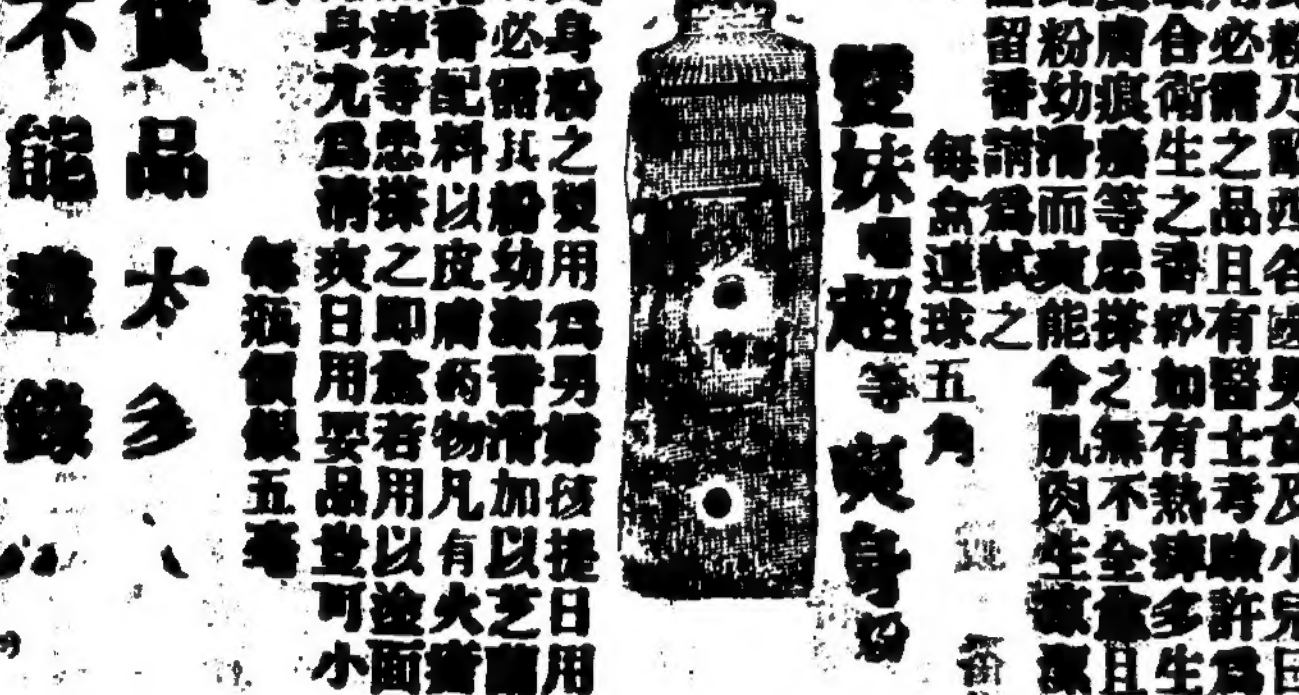 粉乃歐西各國男女及小兒日
用必需之品且有醫士考驗許爲
最合衛生之香粉如有熱痱多生
皮膚痕癢等患搽之無不全愈且
此粉幼滑而爽能令肌肉生涼
留香請爲試之
每盒連球五角
雙妹嚜超等爽身粉
爽身粉之製用爲男婦孩提日用
必需其粉幼潔香滑加以芝蘭
香配料以皮膚葯物凡有火瘡
痱等患搽之即愈若用以塗面
身尤爲清爽日用要品豈可小
每瓶價銀五毫
貨品太多
不能盡錄